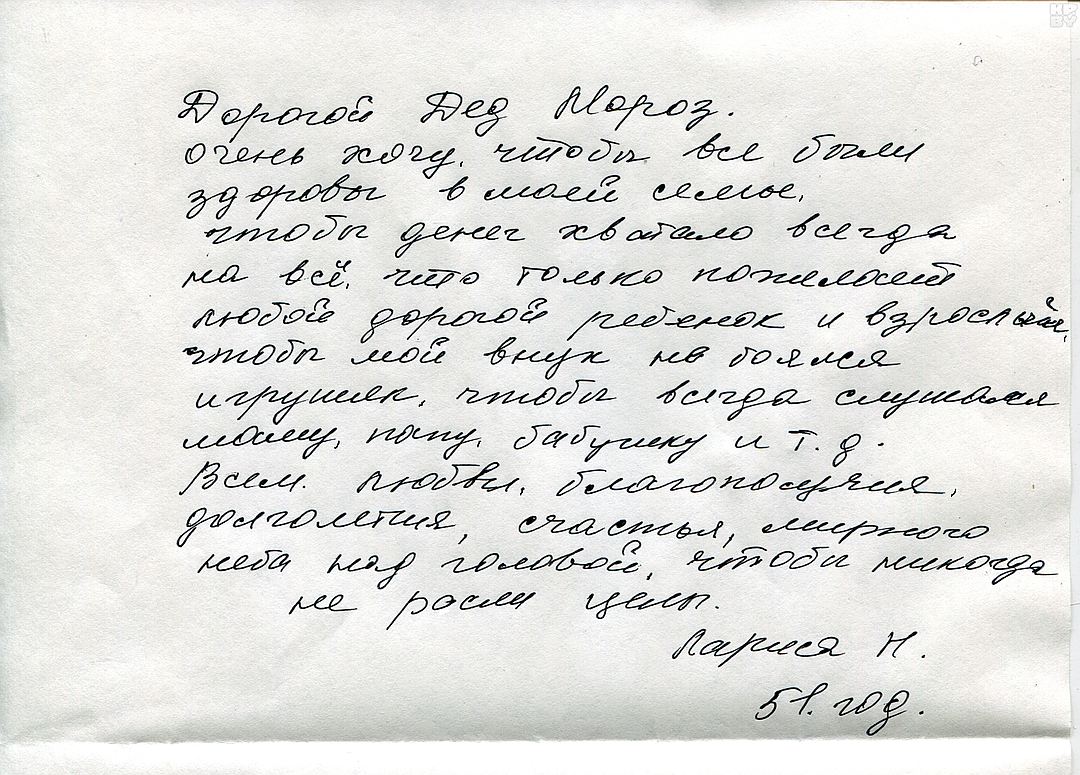 КР
BY
Дорогой Дед Мороз.
Очень хочу, чтобы все были
здоровы в моей семье,
чтобы денег хватало всегда
на всё, что только пожелает
любой дорогой ребенок и взрослый,
чтобы мой внук не боялся
игрушек, чтобы всегда слушался
маму, папу, бабушку и т.д.
Всем любви, благополучия,
долголетия, счастья, мирного
неба над головой, чтобы никогда
не росли цены.
Лариса Н.
51. год.